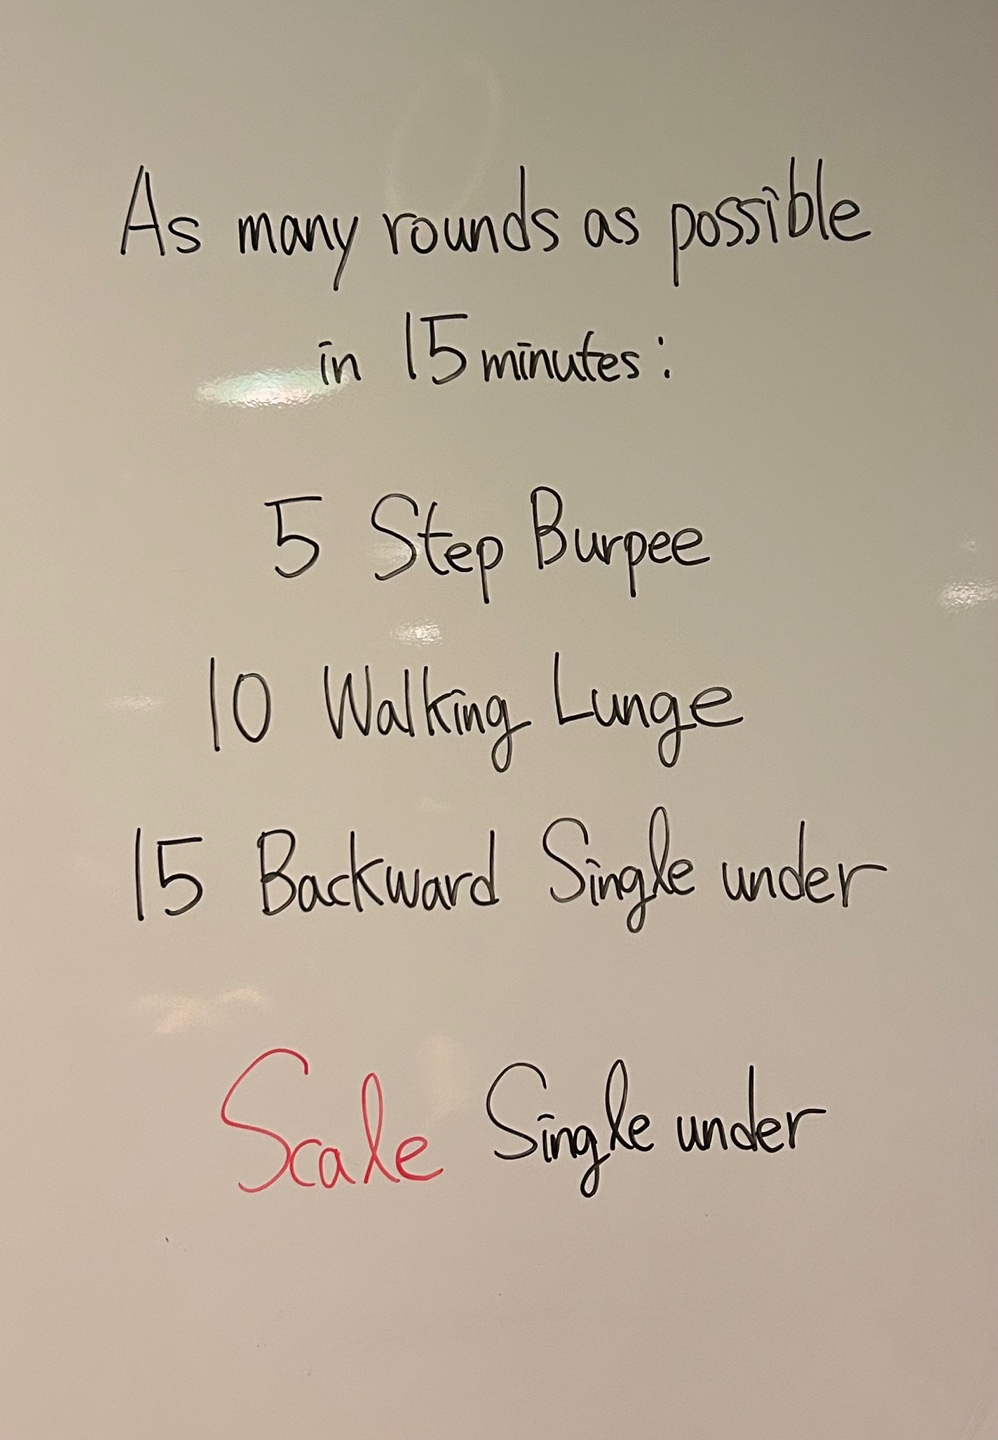 As many rounds as possible
in 15 minutes:
5 Step Burpee
10 Walking Lunge
15 Backward Single under
Scale Single under